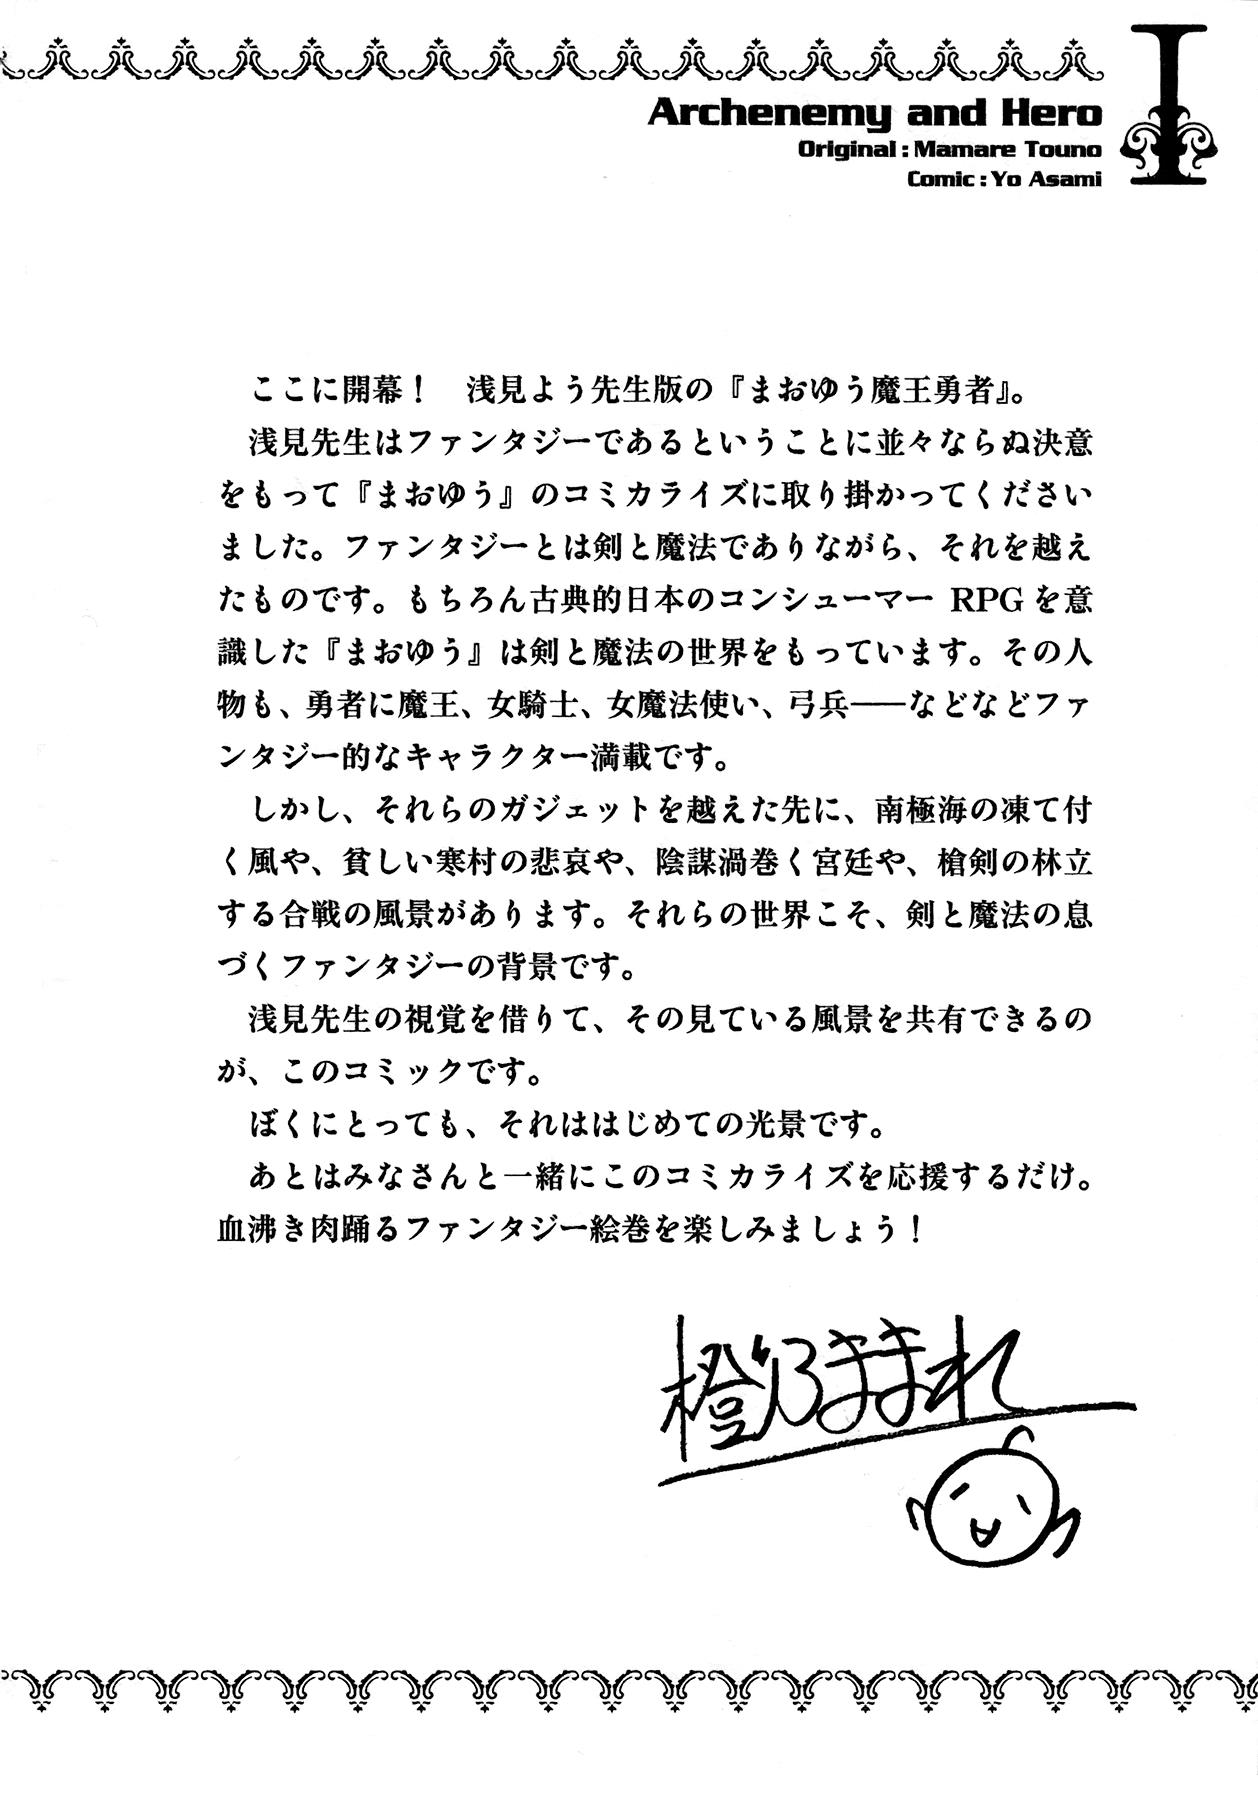 I
Archenemy and Hero
Original : Mamare Touno
Comic : Yo Asami
ここに開幕！　浅見よう先生版の『まおゆう魔王勇者』。
浅見先生はファンタジーであるということに並々ならぬ決意
をもって『まおゆう』のコミカライズに取り掛かってください
ました。ファンタジーとは剣と魔法でありながら、それを越え
たものです。もちろん古典的日本のコンシューマー RPG を意
識した『まおゆう』は剣と魔法の世界をもっています。その人
物も、勇者に魔王、女騎士、女魔法使い、弓兵――などなどファ
ンタジー的なキャラクター満載です。
しかし、それらのガジェットを越えた先に、南極海の凍て付
く風や、貧しい寒村の悲哀や、陰謀渦巻く宮廷や、槍剣の林立
する合戦の風景があります。それらの世界こそ、剣と魔法の息
づくファンタジーの背景です。
浅見先生の視覚を借りて、その見ている風景を共有できるの
が、このコミックです。
ぼくにとっても、それははじめての光景です。
あとはみなさんと一緒にこのコミカライズを応援するだけ。
血沸き肉踊るファンタジー絵巻を楽しみましょう！
橙乃ままれ